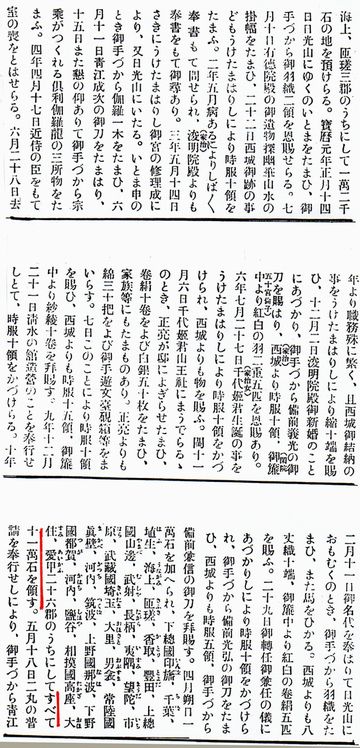 海上、匝瑳三郡のうちにして一萬二千
石の地を預けらる。寶暦元年正月十四
日日光山にゆくのいとまをたまひ、御
手づから御羽織二領を恩賜せらる。七
月十日有德院殿の御遺物探幽筆山水の
掛幅をたまひ、二十二日西城御跡の事
どもうけたまはりしにより時服十領を
たまふ。二年五月病あるによりしばしば
奉書もて問せられ、浚明院殿よりも
奉書をもて御尋あり。三年五月十四日
さきにうけたまはりし御宮の修理成に
より、又日光山にいたる。いとま申の
とき御手づから伽羅一木をたまひ、六
月十一日靑江成次の御刀をたまはり、
十五日また懇の仰ありて御手づから宗
乘がつくれる倶利伽羅龍の三所物をた
まふ。四年四月十七日近侍の臣をもて
室の喪をとはせらる。六月二十八日去
年より職務殊に繁く、且西城御結納の
事をうけたまはりしにより縮十端を賜
ひ、十二月二日浚明院殿御新婚のこと
にあづかり、御手づから備前義光の御
刀を賜はり、西城より時服十領、御簾
中より紅白の羽二重五匹を恩賜あり。
六年七月二十七日千代姬君生誕の事を
うけたまはりしにより時服十領をかづ
けられ、西城よりも物を賜ふ。閏十一
月六日千代姬君山王社にまうでらるゝ
のとき、正亮が邸によぎらせたまひ、
卷絹十卷をよび白銀五十枚をたまひ、
家族等にもたまものあり。正亮よりも
綿三十把をよび御手遊文臺硯箱等をま
いらす。七日このことにより時服十領
を賜ひ、西城よりも時服十五領、御簾
中より紗綾十卷を拜賜す。九年十二月
二十一日淸水の館造營のことを奉行せ
しとて、時服十領をかづけらる。十年
二月十一日御名代を奉はりて日光山に
おもむくのとき、御手づから羽織をた
まひ、また馬をひかる。西城よりも八
丈織十端、御簾中より紅白の卷絹五匹
を賜ふ。二十九日御轉任御兼任の儀に
あづかりしにより時服十領をかづけら
れ、御手づから備前光弘の御刀をたま
ひ、西城よりも時服五領、御簾中より
備前兼信の御刀を拜賜す。四月朔日一
萬石を加へられ、下總國印旛、千葉、
埴生、海上、匝瑳、香取、豐田、上總
國山邊、武射、長柄、夷隅、望陀、市
原、武藏國埼玉、大里、男衾、常陸國
眞壁、河內、筑波、上野國那波、下野
國都賀、河內、鹽谷、相摸國高座、大
住、愛甲二十六郡のうちにしてすべて
十一萬石を領す。五月十八日二丸の普
請を奉行せしにより、御手づから靑江